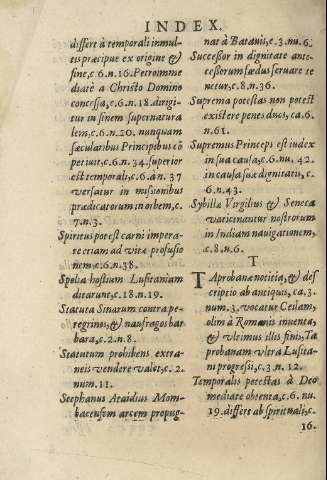 INDEX.
differe à temporali in mul-
tis præcipue ex origine &
fine,c.6.n.16. Petro imme
diatè à Christo Domino
concessa, c.6.n.18. dirigi-
tur in finem supernatura
lem, c.6.n.20. nunquam
sæcularibus Principibus cõ
petiuit, c.6.n.34. superior
est temporali, c.6. à n. 37
versatur in missionibus
prædicatorum in orbem, c.
7. n.3.
Spiritus potest carni impera-
re etiam ad vitæ profusio
nem c.6.n.38.
Spolia hostium Lusitaniam
ditarunt, c.18.n.19.
Statuta Sinarum contra pe-
regrinos, & naufragos bar
bara, c.2.n.8.
Statutum prohibens extra-
neis vendere valet, c.2.
num.11.
Stephanus Ataidius Mom-
bacensem arcem propug-
nat à Batauis, c.3.nu.6.
Successor in dignitate ante-
cessorum fœdus seruare te
netur, c.8.n.36.
Suprema potestas non potest
existere penes duos, ca.6.
n.61.
Supremus Princeps est iudex
in sua causa, c.6.nu. 42.
in causa suæ dignitatis, c.
6.n.43.
Sybilla Virgilius & Seneca
vaticinantur nostrorum
in Indiam nauigationem,
c.8.n.6.
T
TAprobanæ notitia, & des
criptio ab antiquis, ca.3.
num.3. vocatur Ceilam,
olim à Romanis inuenta,
& vltimus illis finis, Ta
probanam vltra Lusita-
ni progressi, c.3.n.12.
Temporalis potestas à Deo
mediate obtenta, c.6.nu.
19. differe ab spirituali, c.
16.